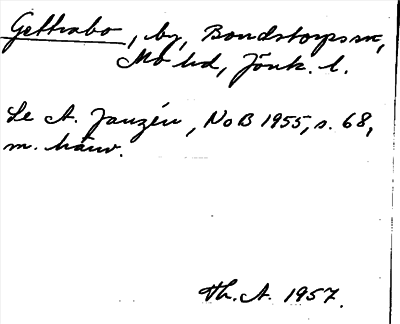 Gettrabo, by, Bondstorps sn,
Mo hd, Jönk. l.
Se A. Janzén, NoB 1955, s. 68,
m. hänv.
Th. A. 1957.